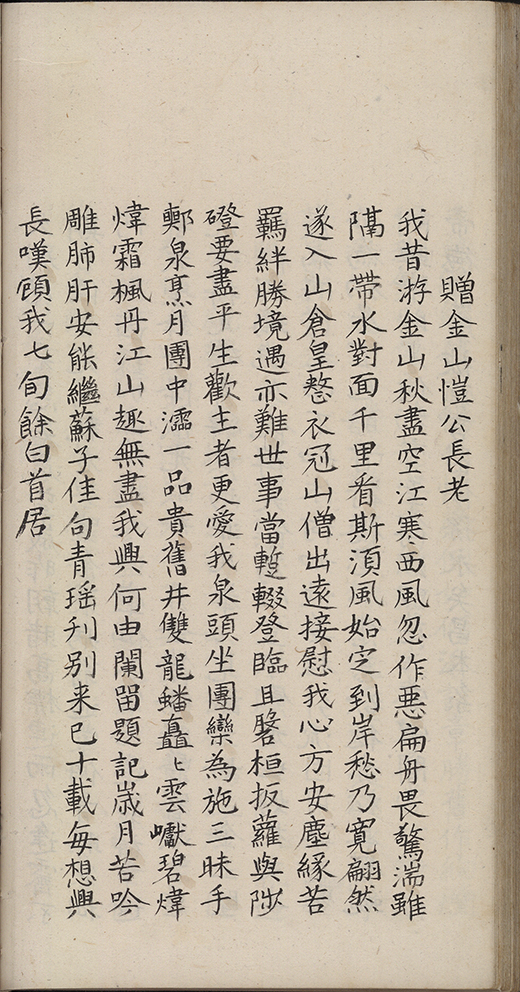 贈金山愷公長老
我昔游金山秋盡空江寒西風忽作惡扁舟畏驚湍雖
隔一帶水對面千里看斯須風始定到岸愁乃寬翩然
遂入山倉皇整衣冠山僧出遠接慰我心方安塵緣苦
羈絆勝境遇亦難世事當蹔輟登臨且磐桓扳蘿與陟
磴要盡平生歡主者更愛我泉頭坐團欒為施三昧手
郵泉烹月團中濡一品貴舊井雙龍蟠矗〻雲巘碧煒
煒霜楓丹江山趣無盡我興何由闌留題記歲月苦吟
雕肺肝安能繼蘇子佳句青瑤刋别来已十載每想興
長嘆頋我七旬餘白首居